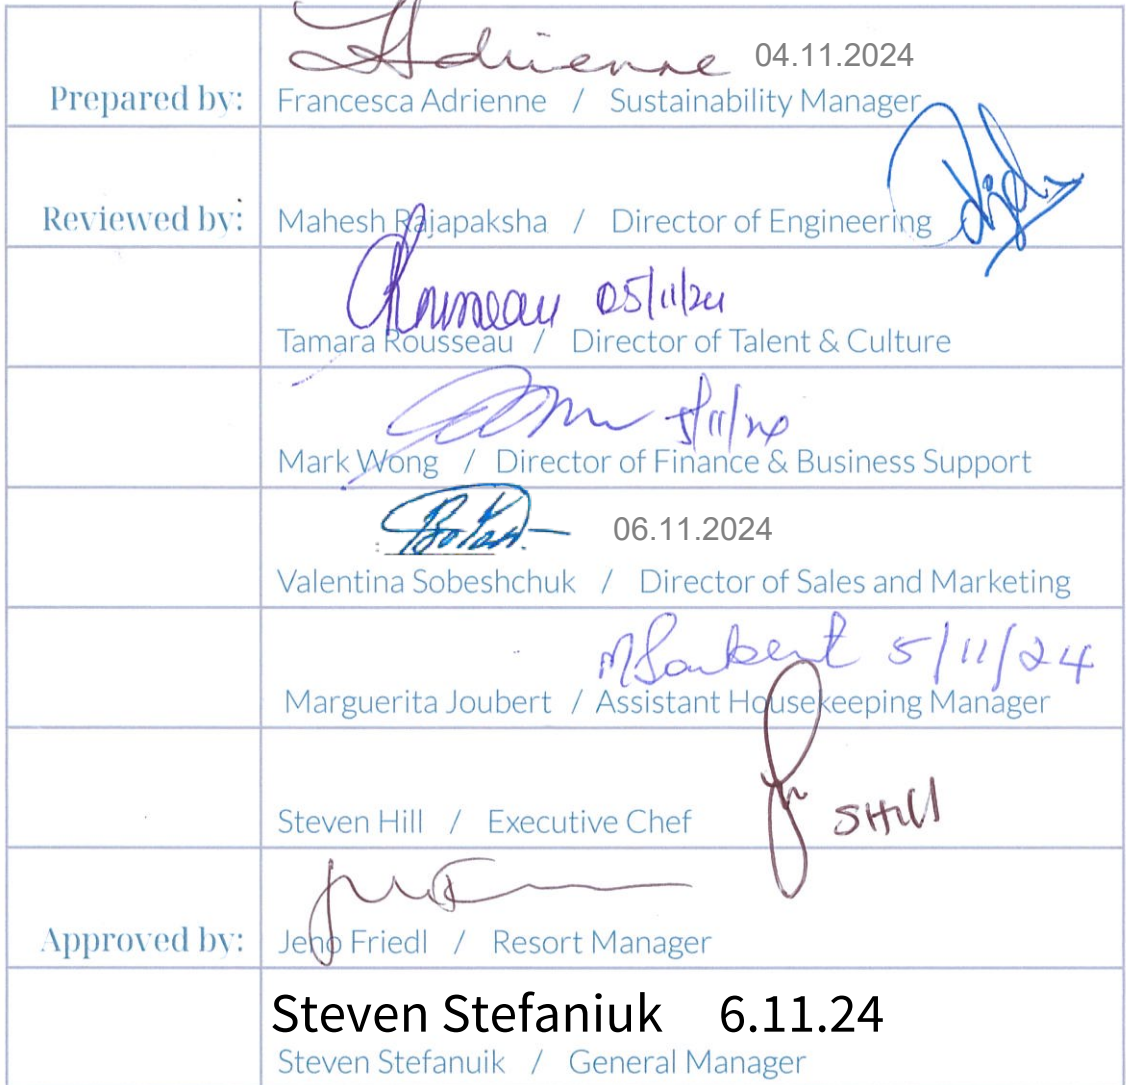 Adrienne 04.11.2024
Prepared by: Francesca Adrienne / Sustainability Manager
Reviewed by: Mahesh Rajapaksha / Director of Engineering
Rousseau 05/11/24
Tamara Rousseau / Director of Talent & Culture
5/11/24
Mark Wong / Director of Finance & Business Support
06.11.2024
Valentina Sobeshchuk / Director of Sales and Marketing
MJoubert 5/11/24
Marguerita Joubert / Assistant Housekeeping Manager
SHill
Steven Hill / Executive Chef
Approved by: Jeno Friedl / Resort Manager
Steven Stefaniuk 6.11.24
Steven Stefanuik / General Manager